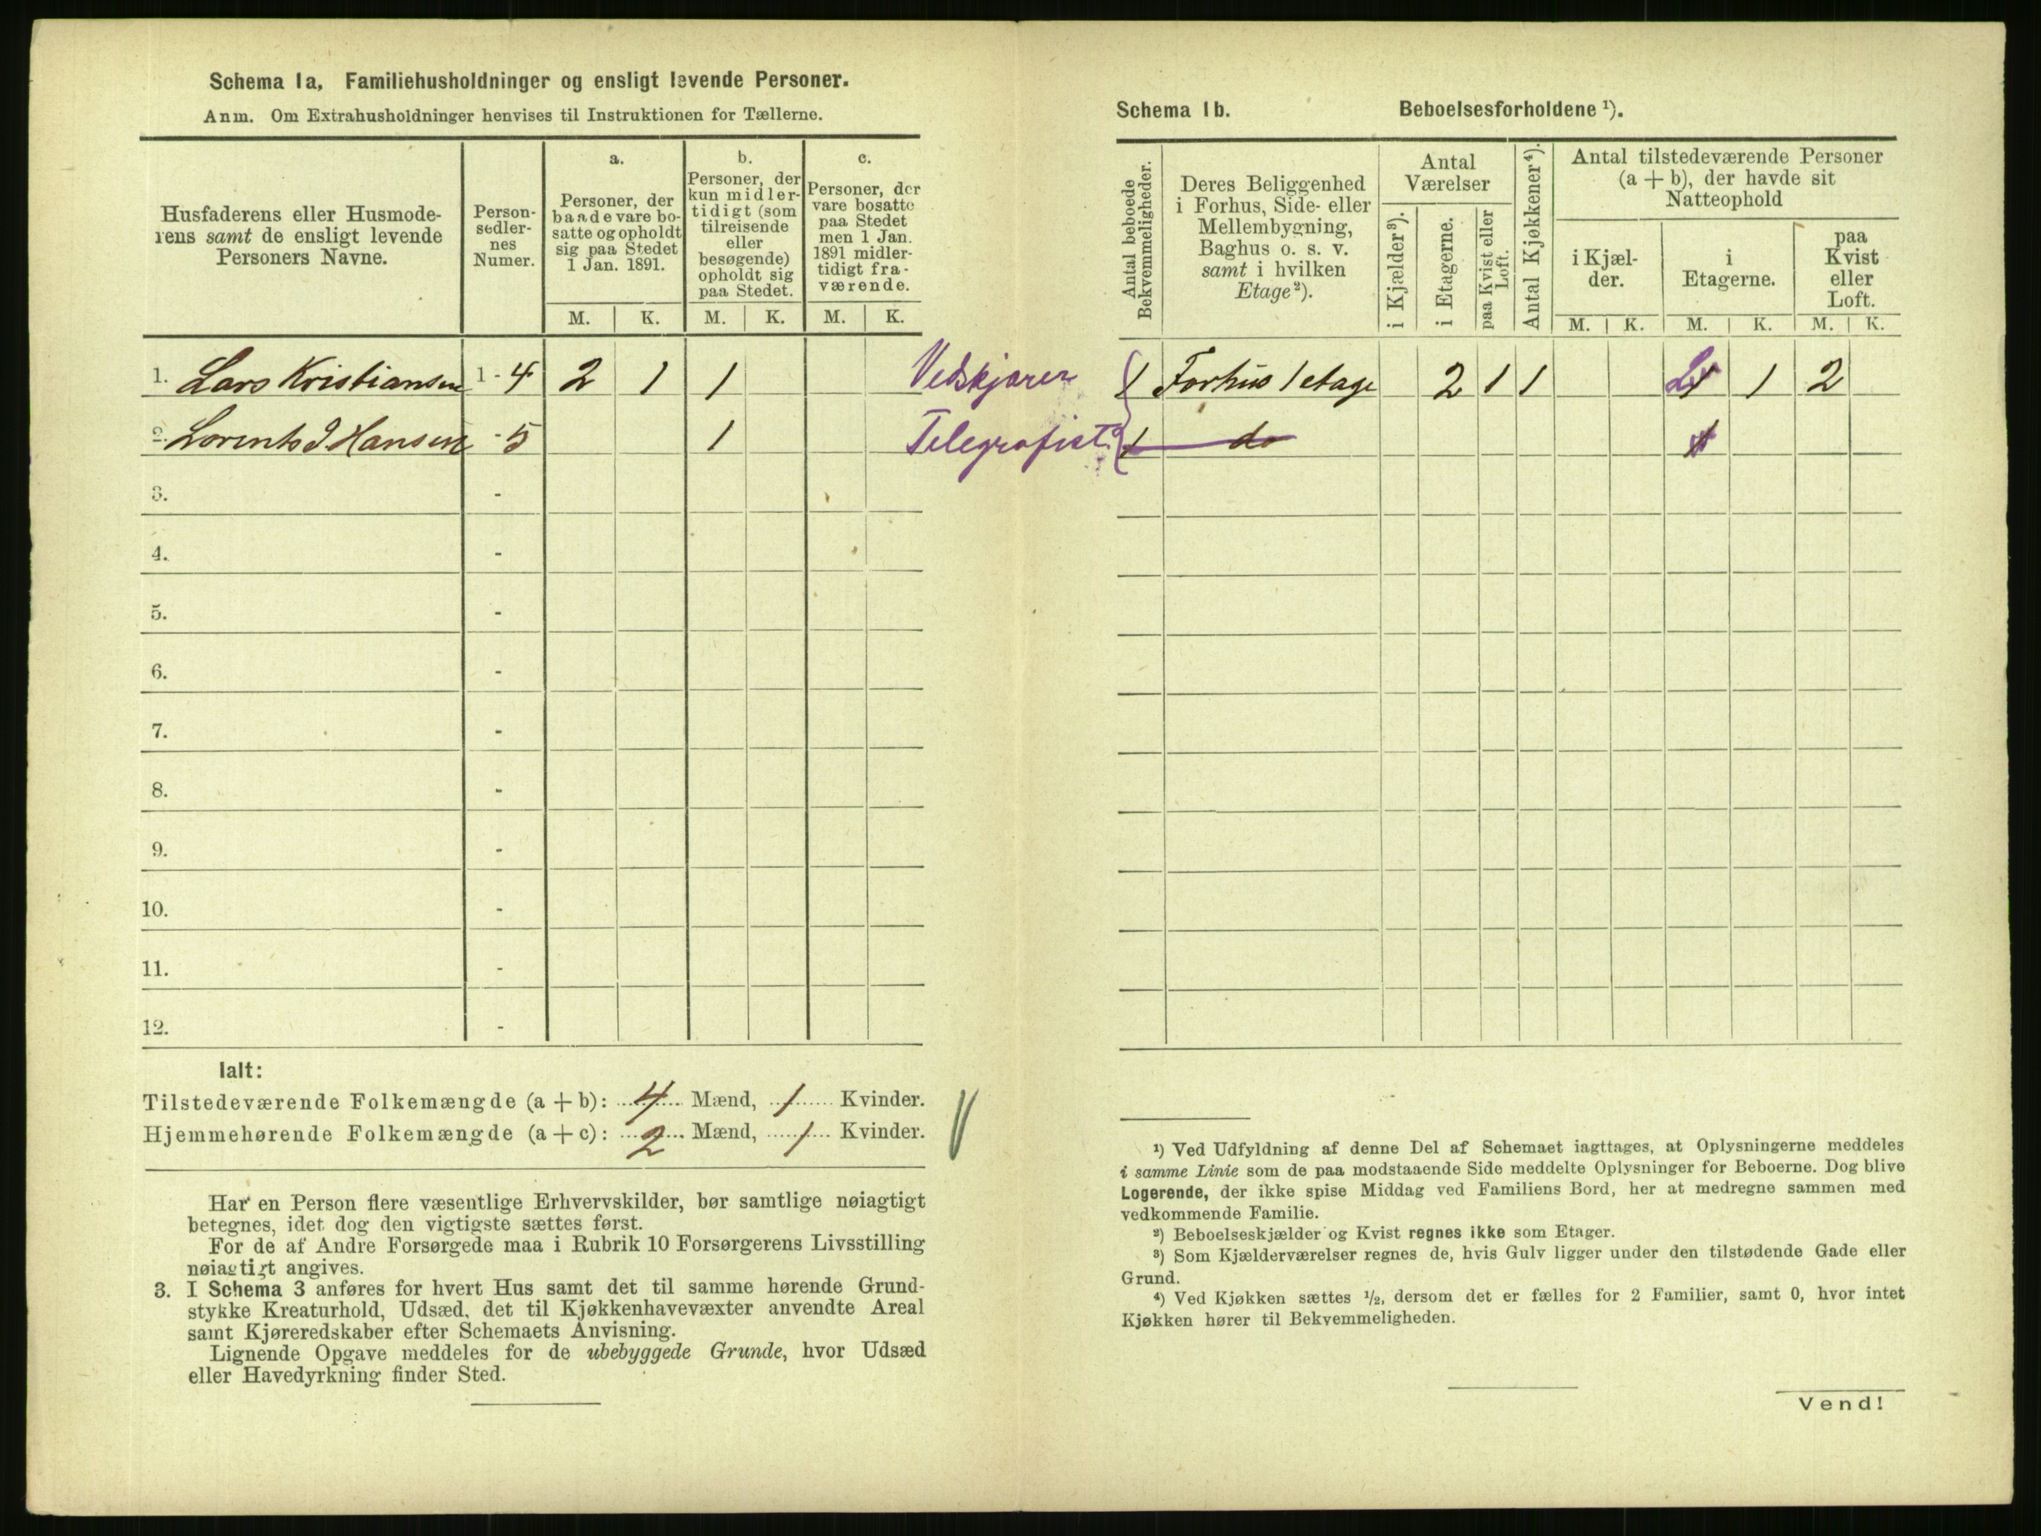 Schema 1a, Familiehusholdninger og ensligt levende Personer.
Anm. Om Extrahusholdninger henvises til Instruktionen for Tællerne.
Husfaderens eller Husmode-
rens samt de ensligt levende
Personers Navne.
Person-
sedler-
nes
Numer.
a.
Personer, der
baade vare bo-
satte og opholdt
sig paa Stedet
1 Jan. 1891.
b.
Personer, der
kun midler-
tidigt (som
tilreisende
eller
besøgende)
opholdt sig
paa Stedet.
c.
Personer, der
vare bosatte
paa Stedet
men 1 Jan.
1891 midler-
tidigt fra-
værende.
M. K. M. K. M. K.
1. Lars Kristiansen 1-4 2 1 1 Vedskjører
2. Lorents J Hansen -5 1 Telegrafist
3. -
4. -
5. -
6. -
7. -
8. -
9. -
10. -
11. -
12. -
Ialt:
Tilstedeværende Folkemængde (a + b): 4 Mænd, 1 Kvinder.
Hjemmehørende Folkemængde (a + c): 2 Mænd, 1 Kvinder.
Har en Person flere væsentlige Erhvervskilder, bør samtlige nøiagtigt
betegnes, idet dog den vigtigste sættes først.
For de af Andre Forsørgede maa i Rubrik 10 Forsørgerens Livsstilling
nøiagtigt angives.
3. I Schema 3 anføres for hvert Hus samt det til samme hørende Grund-
stykke Kreaturhold, Udsæd, det til Kjøkkenhavevæxter anvendte Areal
samt Kjøreredskaber efter Schemaets Anvisning.
Lignende Opgave meddeles for de ubebyggede Grunde, hvor Udsæd
eller Havedyrkning finder Sted.
Schema 1b. Beboelsesforholdene ¹).
Antal beboede
Bekvemmeligheder.
Deres Beliggenhed
i Forhus, Side- eller
Mellembygning,
Baghus o. s. v.
samt i hvilken
Etage²).
Antal
Værelser
i Kjælder³).
i Etagerne.
paa Kvist eller
Loft.
Antal Kjøkkener⁴).
Antal tilstedeværende Personer
(a + b), der havde sit
Natteophold
i Kjæl-
der.
i
Etagerne.
paa
Kvist
eller
Loft.
M. K. M. K. M. K.
1 Forhus 1 etage 2 1 1 2 1 2
1 do 1
¹) Ved Udfyldning af denne Del af Schemaet iagttages, at Oplysningerne meddeles
i samme Linie som de paa modstaaende Side meddelte Oplysninger for Beboerne. Dog blive
Logerende, der ikke spise Middag ved Familiens Bord, her at medregne sammen med
vedkommende Familie.
²) Beboelseskjælder og Kvist regnes ikke som Etager.
³) Som Kjælderværelser regnes de, hvis Gulv ligger under den tilstødende Gade eller
Grund.
⁴) Ved Kjøkken sættes ½, dersom det er fælles for 2 Familier, samt 0, hvor intet
Kjøkken hører til Bekvemmeligheden.
Vend!